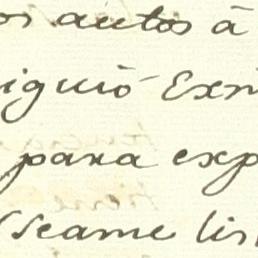 os autos á
iguió Exm
para exp
Seame lis